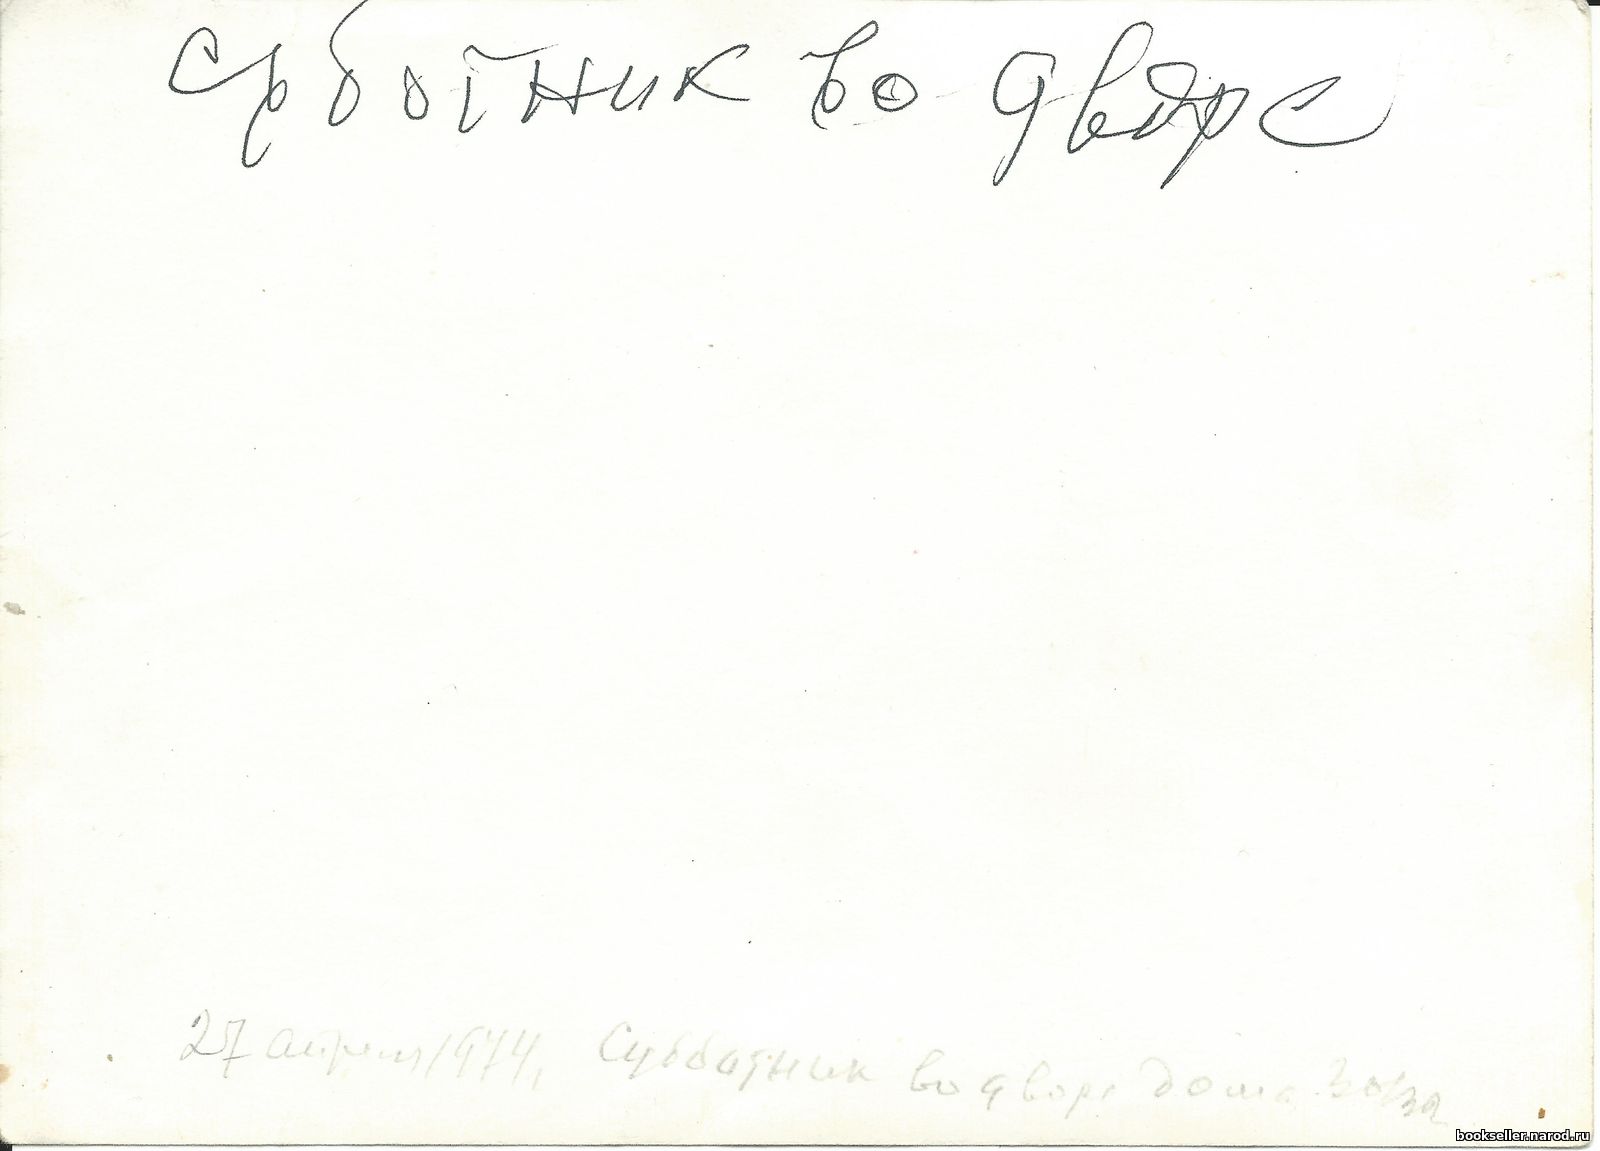 Суботник во дворе
27 апреля 1974, Субботник во дворе дома 30/32
bookseller.narod.ru